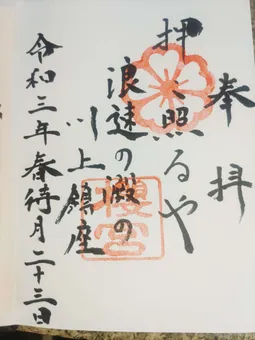 奉拝
押し照るや
浪速の澱の
川上鎮座
櫻宮
令和三年春待月二十三日